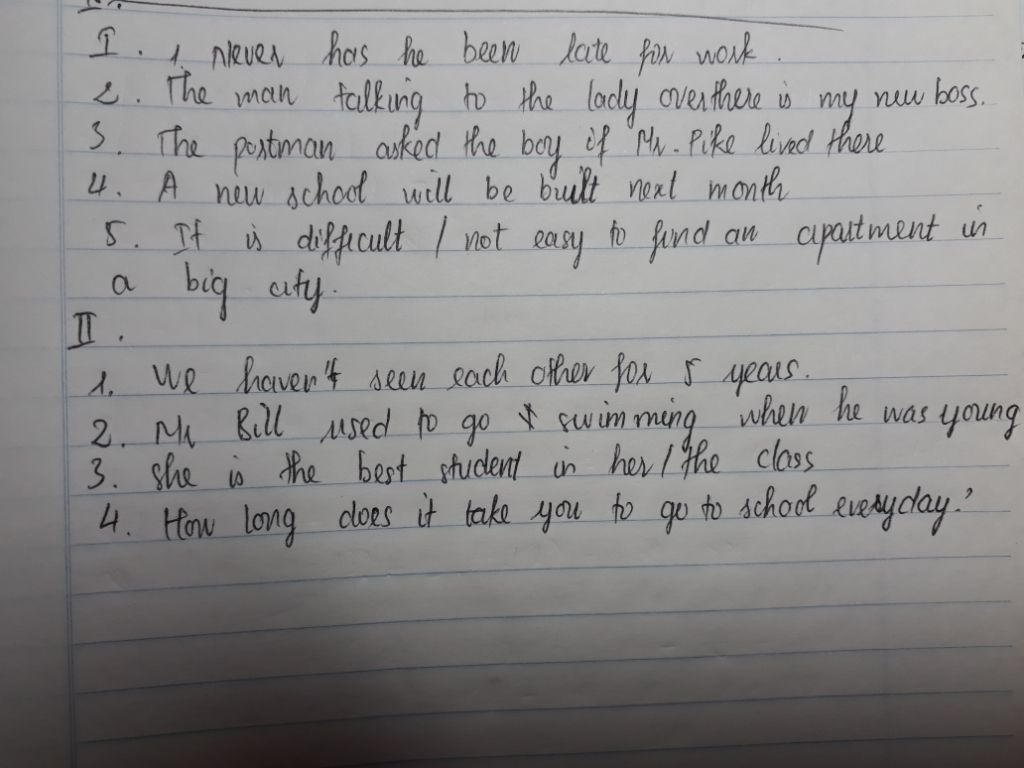 I. 1. Never has he been late for work.
2. The man talking to the lady overthere is my new boss.
3. The postman asked the boy if Mr. Pike lived there
4. A new school will be built next month
5. It is difficult / not easy to find an apartment in
a big city.
II.
1. We haven't seen each other for 5 years.
2. Mr Bill used to go swimming when he was young
3. She is the best student in her / the class
4. How long does it take you to go to school everyday?